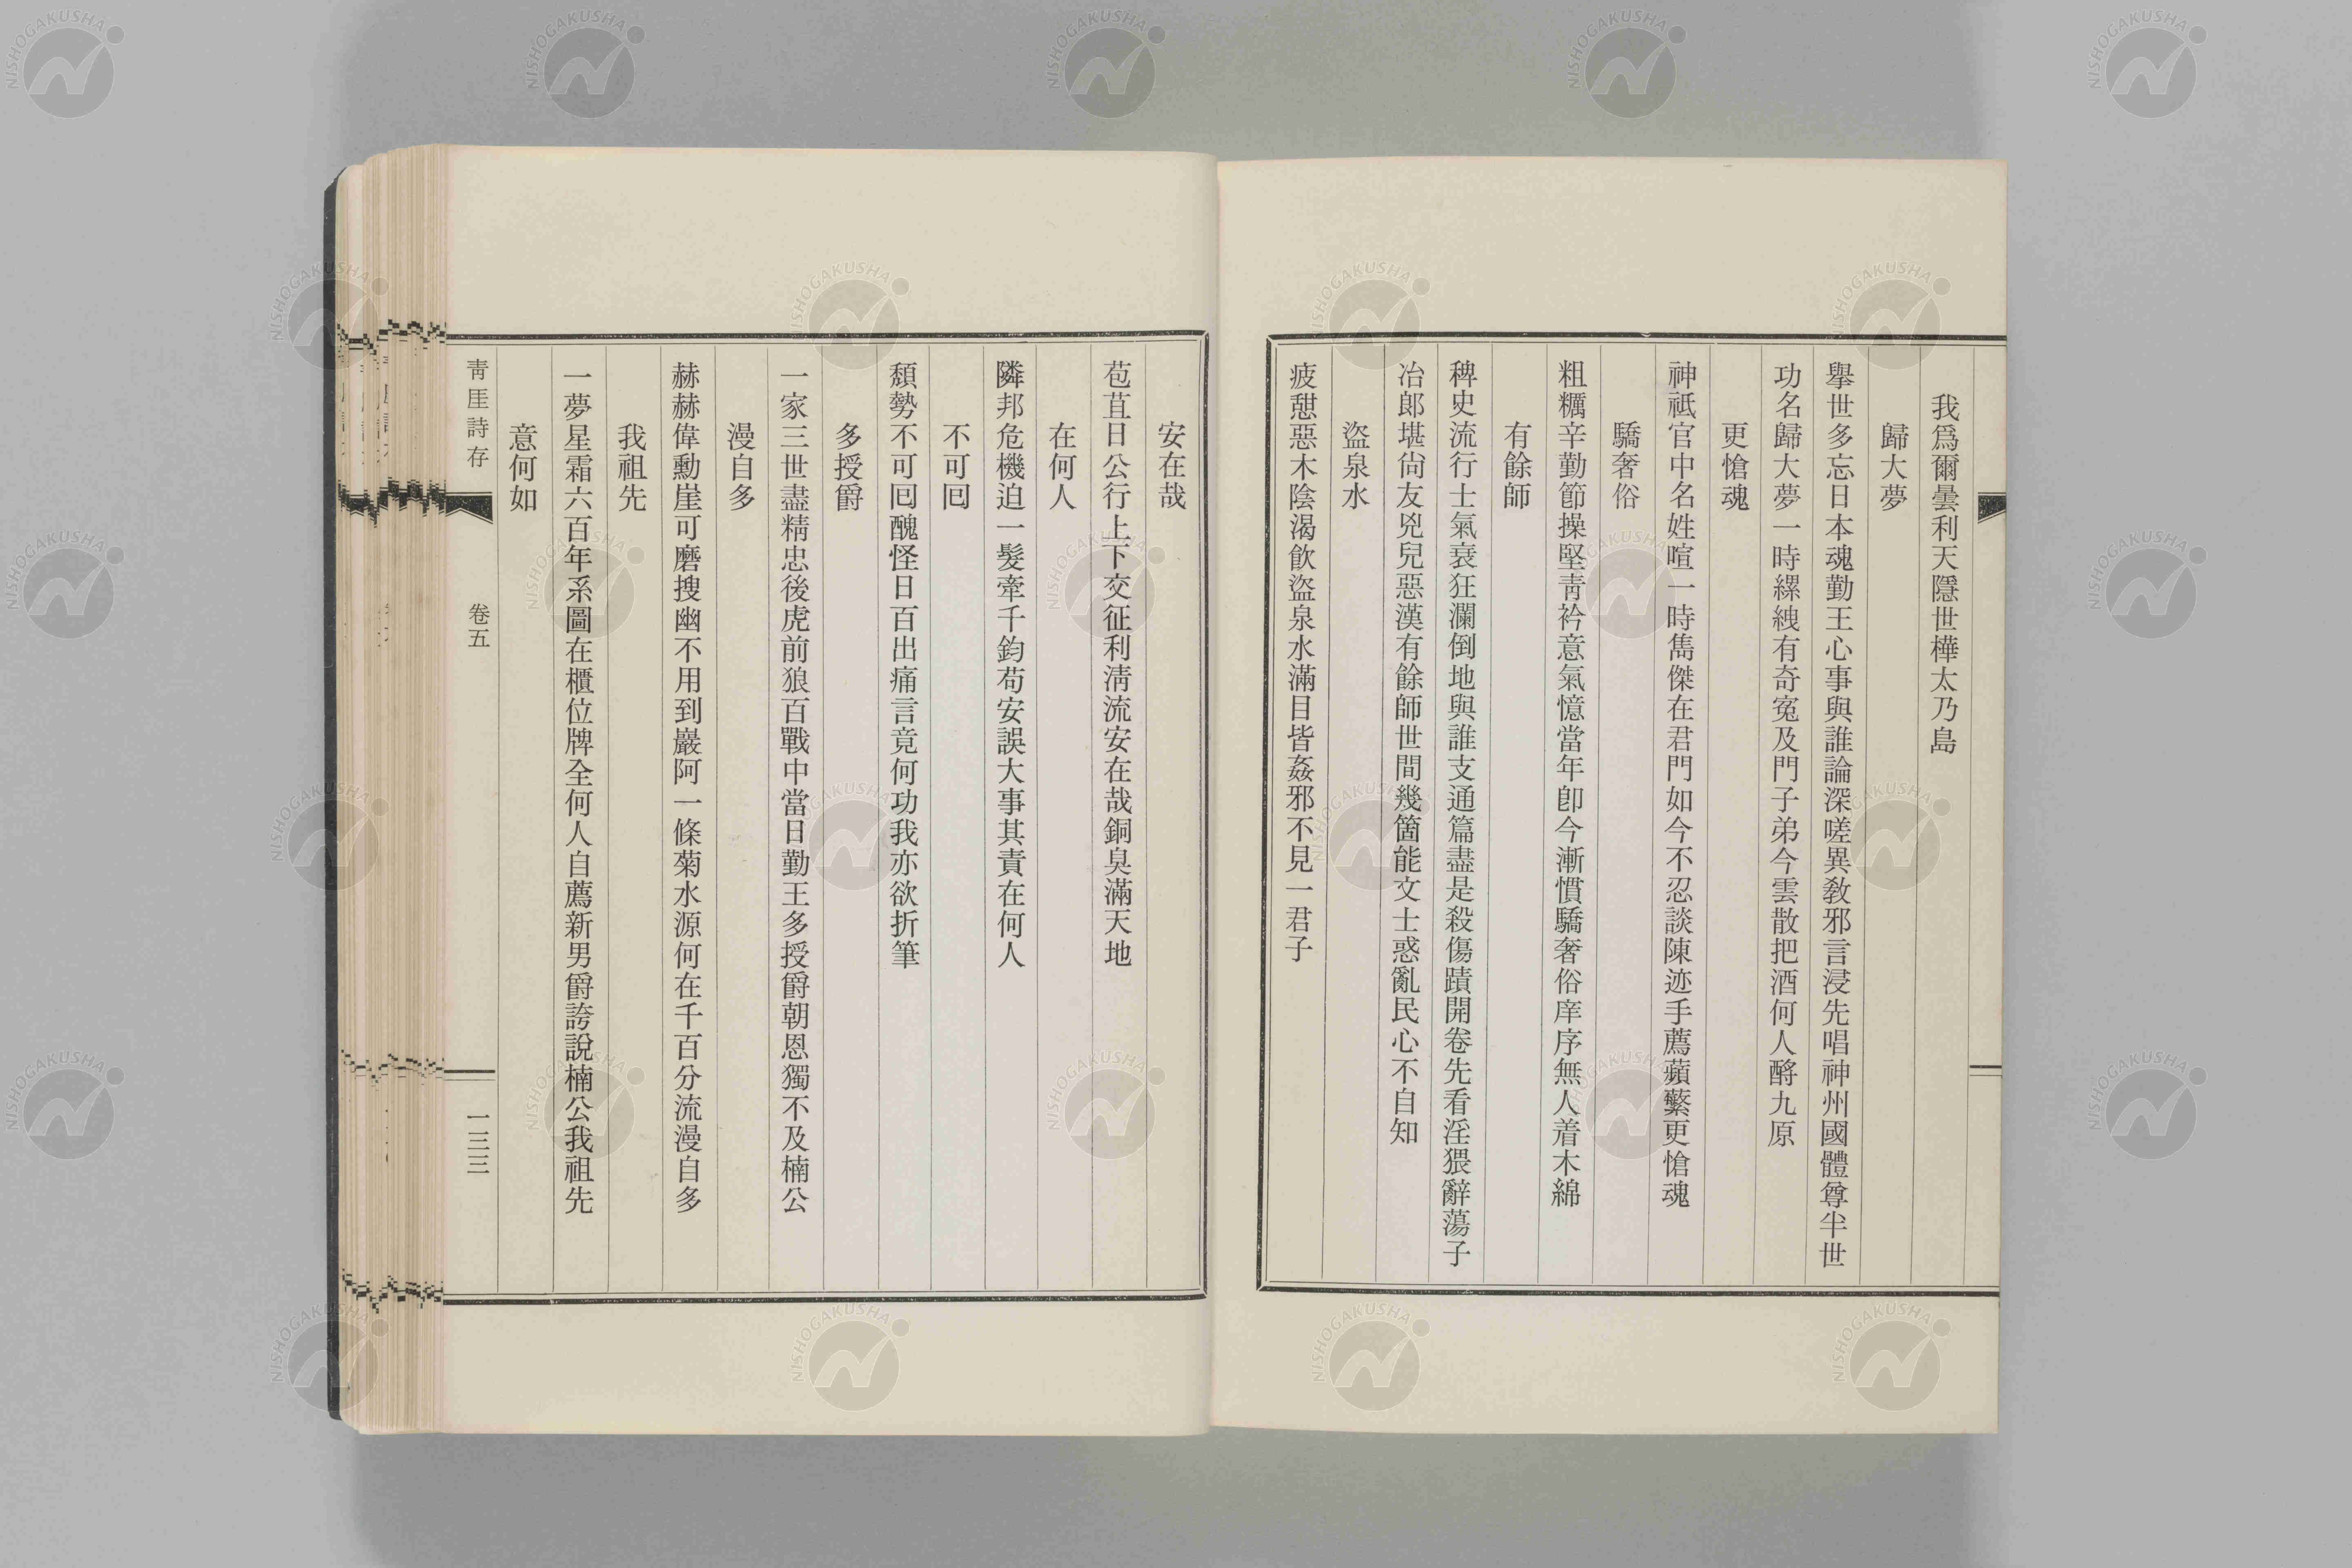 我爲爾曇利天隱世樺太乃島
歸大夢
擧世多忘日本魂勤王心事與誰論深嗟異敎邪言浸先唱神州國體尊半世
功名歸大夢一時縲絏有奇寃及門子弟今雲散把酒何人酹九原
更愴魂
神祇官中名姓喧一時雋傑在君門如今不忍談陳迹手薦蘋蘩更愴魂
驕奢俗
粗糲辛勤節操堅靑衿意氣憶當年卽今漸慣驕奢俗庠序無人着木綿
有餘師
稗史流行士氣衰狂瀾倒地與誰支通篇盡是殺傷蹟開卷先看淫猥辭蕩子
冶郞堪尙友兇兒惡漢有餘師世間幾箇能文士惑亂民心不自知
盜泉水
疲憩惡木陰渴飮盜泉水滿目皆姦邪不見一君子
安在哉
苞苴日公行上下交征利淸流安在哉銅臭滿天地
在何人
隣邦危機迫一髮牽千鈞苟安誤大事其責在何人
不可囘
頹勢不可囘醜怪日百出痛言竟何功我亦欲折筆
多授爵
一家三世盡精忠後虎前狼百戰中當日勤王多授爵朝恩獨不及楠公
漫自多
赫赫偉勳崖可磨搜幽不用到巖阿一條菊水源何在千百分流漫自多
我祖先
一夢星霜六百年系圖在櫃位牌全何人自薦新男爵誇說楠公我祖先
意何如
靑厓詩存 卷五 一三三
NISHOGAKUSHA